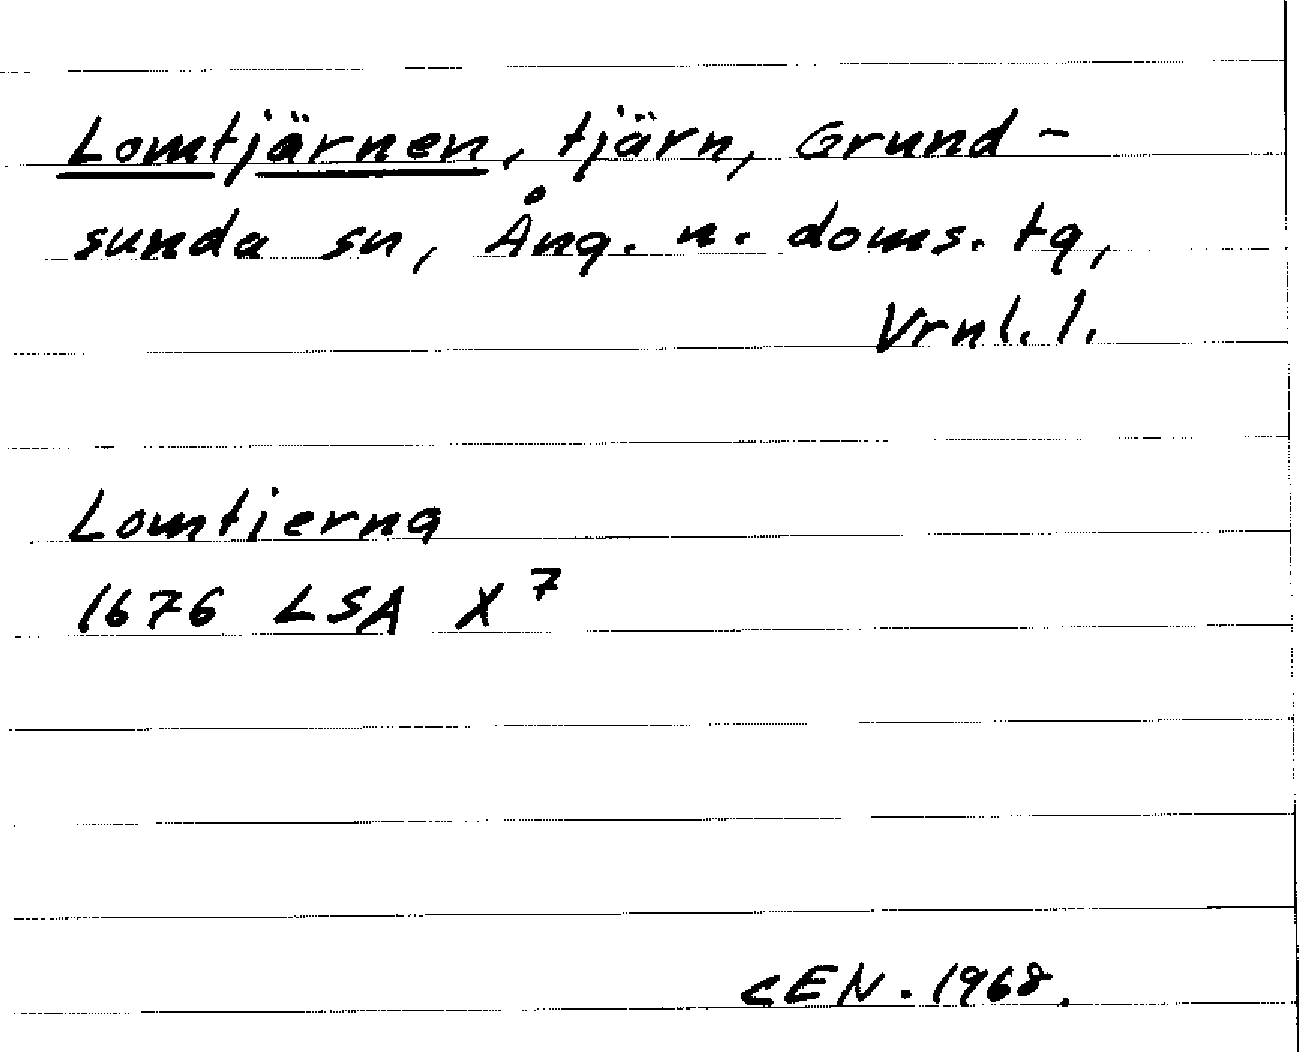 Lomtjärnen, tjärn, Grund-
sunda sn, Ång. n. doms. tg,
Vrnl. l.
Lomtierna
1676 LSA X 7
CEN. 1968.